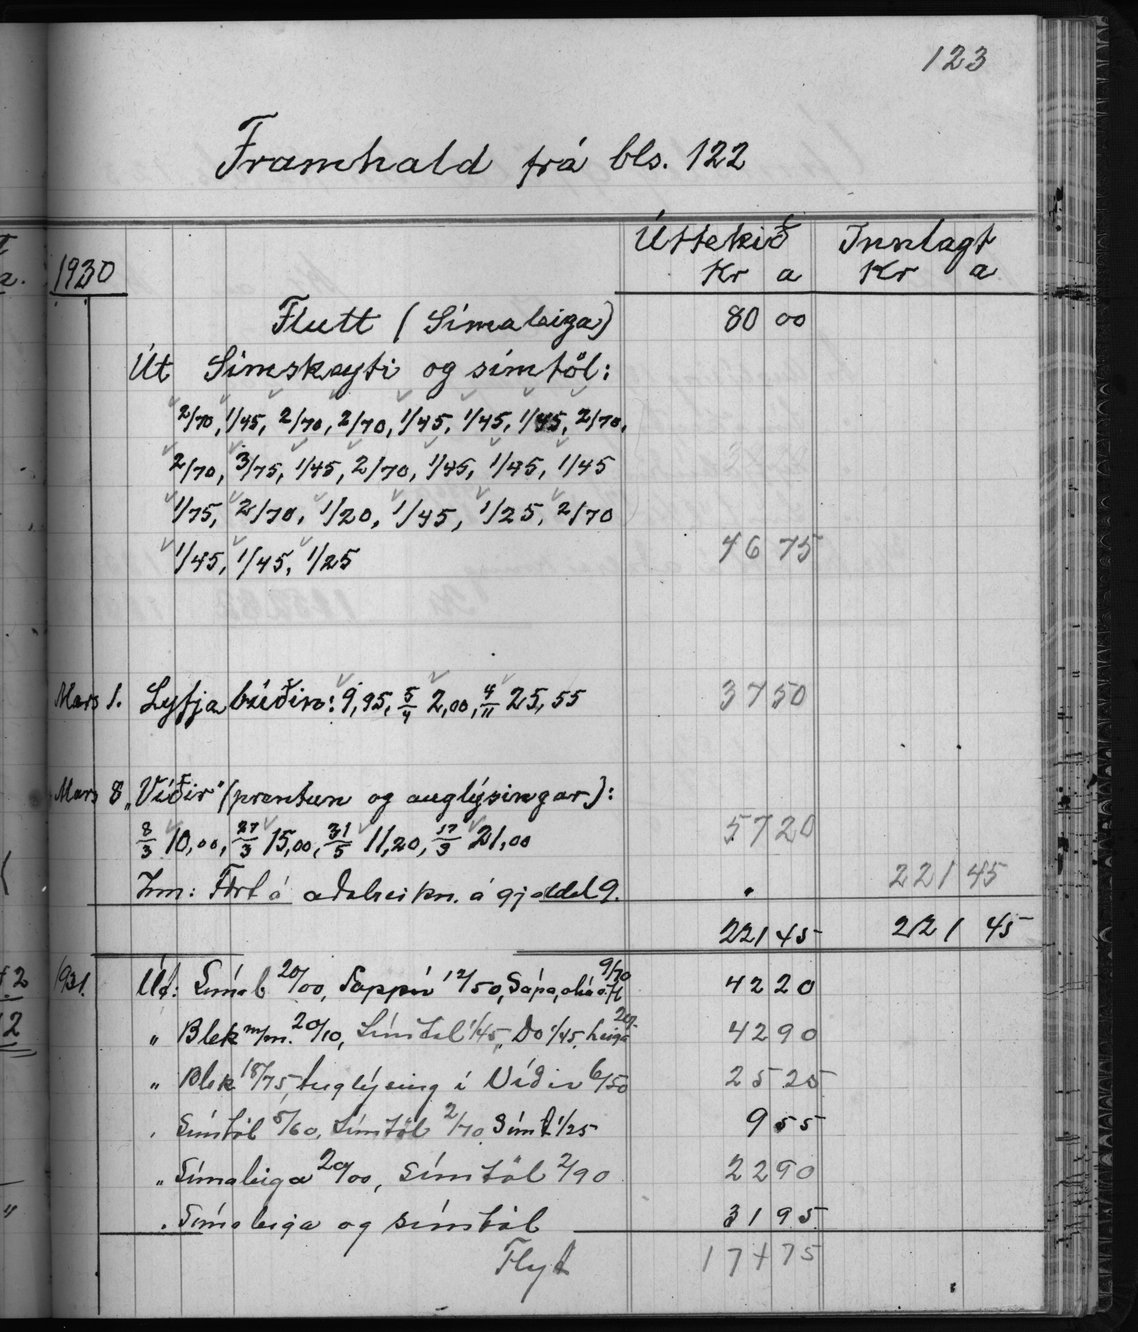 123
Framhald frá bls. 122
Úttekið Innlagt
1930 Kr a Kr a
Flutt (Símaleiga) 80 00
Út Símskeyti og símtöl:
2/70, 1/45, 2/70, 2/70, 1/45, 1/45, 1/45, 2/70,
2/70, 3/75, 1/45, 2/70, 1/45, 1/45, 1/45
1/75, 2/70, 1/20, 1/45, 1/25, 2/70
1/45, 1/45, 1/25 46 75
Mars 1. Lyfjabúðin: 9,95, 5/4 2,00, 4/11 25,55 37 50
Mars 8 „Víðir" (prentun og auglýsingar):
8/3 10,00, 27/3 15,00, 31/5 11,20, 17/9 21,00 57 20
Inn: Fært á aðalreikn. á gjaldal 9. 221 45
221 45 221 45
1931. Út: Símal 20/00, Pappír 12/50, Sápa, 9/70 42 20
„ Blek m/m. 20/10, Símtal 1/45, Do 1/45, leiga 42 90
„ Blek 18/75, auglýsing í Víðir 6/50 25 25
„ Símtöl 5/60, Símtöl 2/70 Símt 1/25 9 55
„ Símaleiga 20/00, símtöl 2/90 22 90
„ Símaleiga og símtöl 31 95
Flyt 174 75